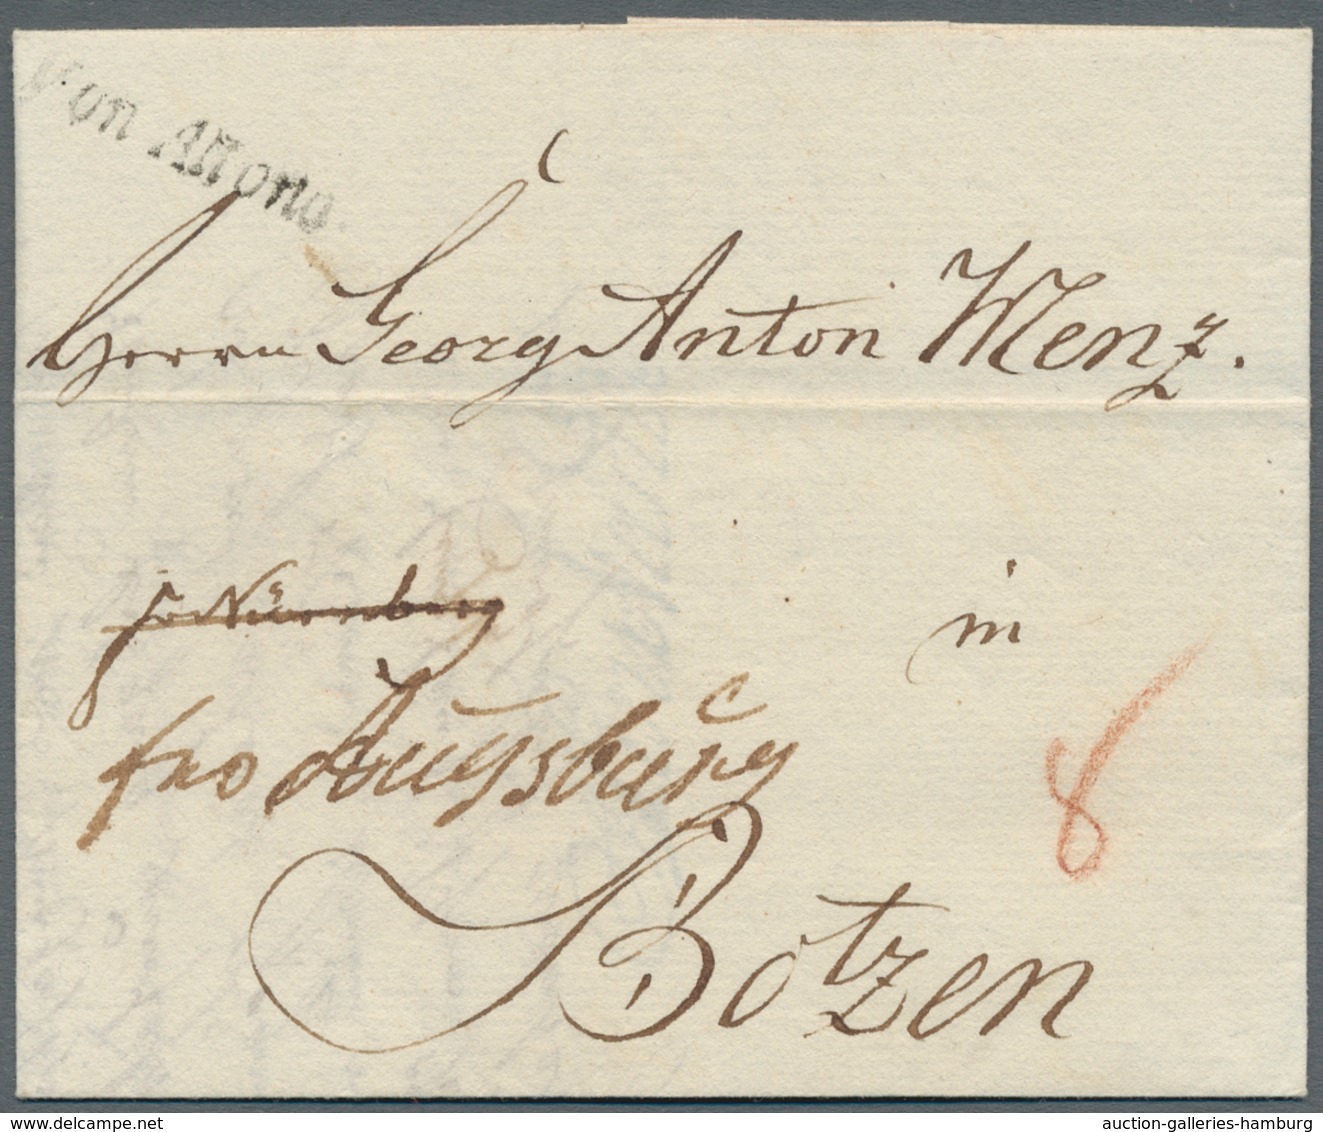 Von Altona.
Herrn Georg Anton Menz.
fro Nürnberg
in
fro Augsburg
8
Botzen
www.delcampe.net
auction-galleries-hamburg